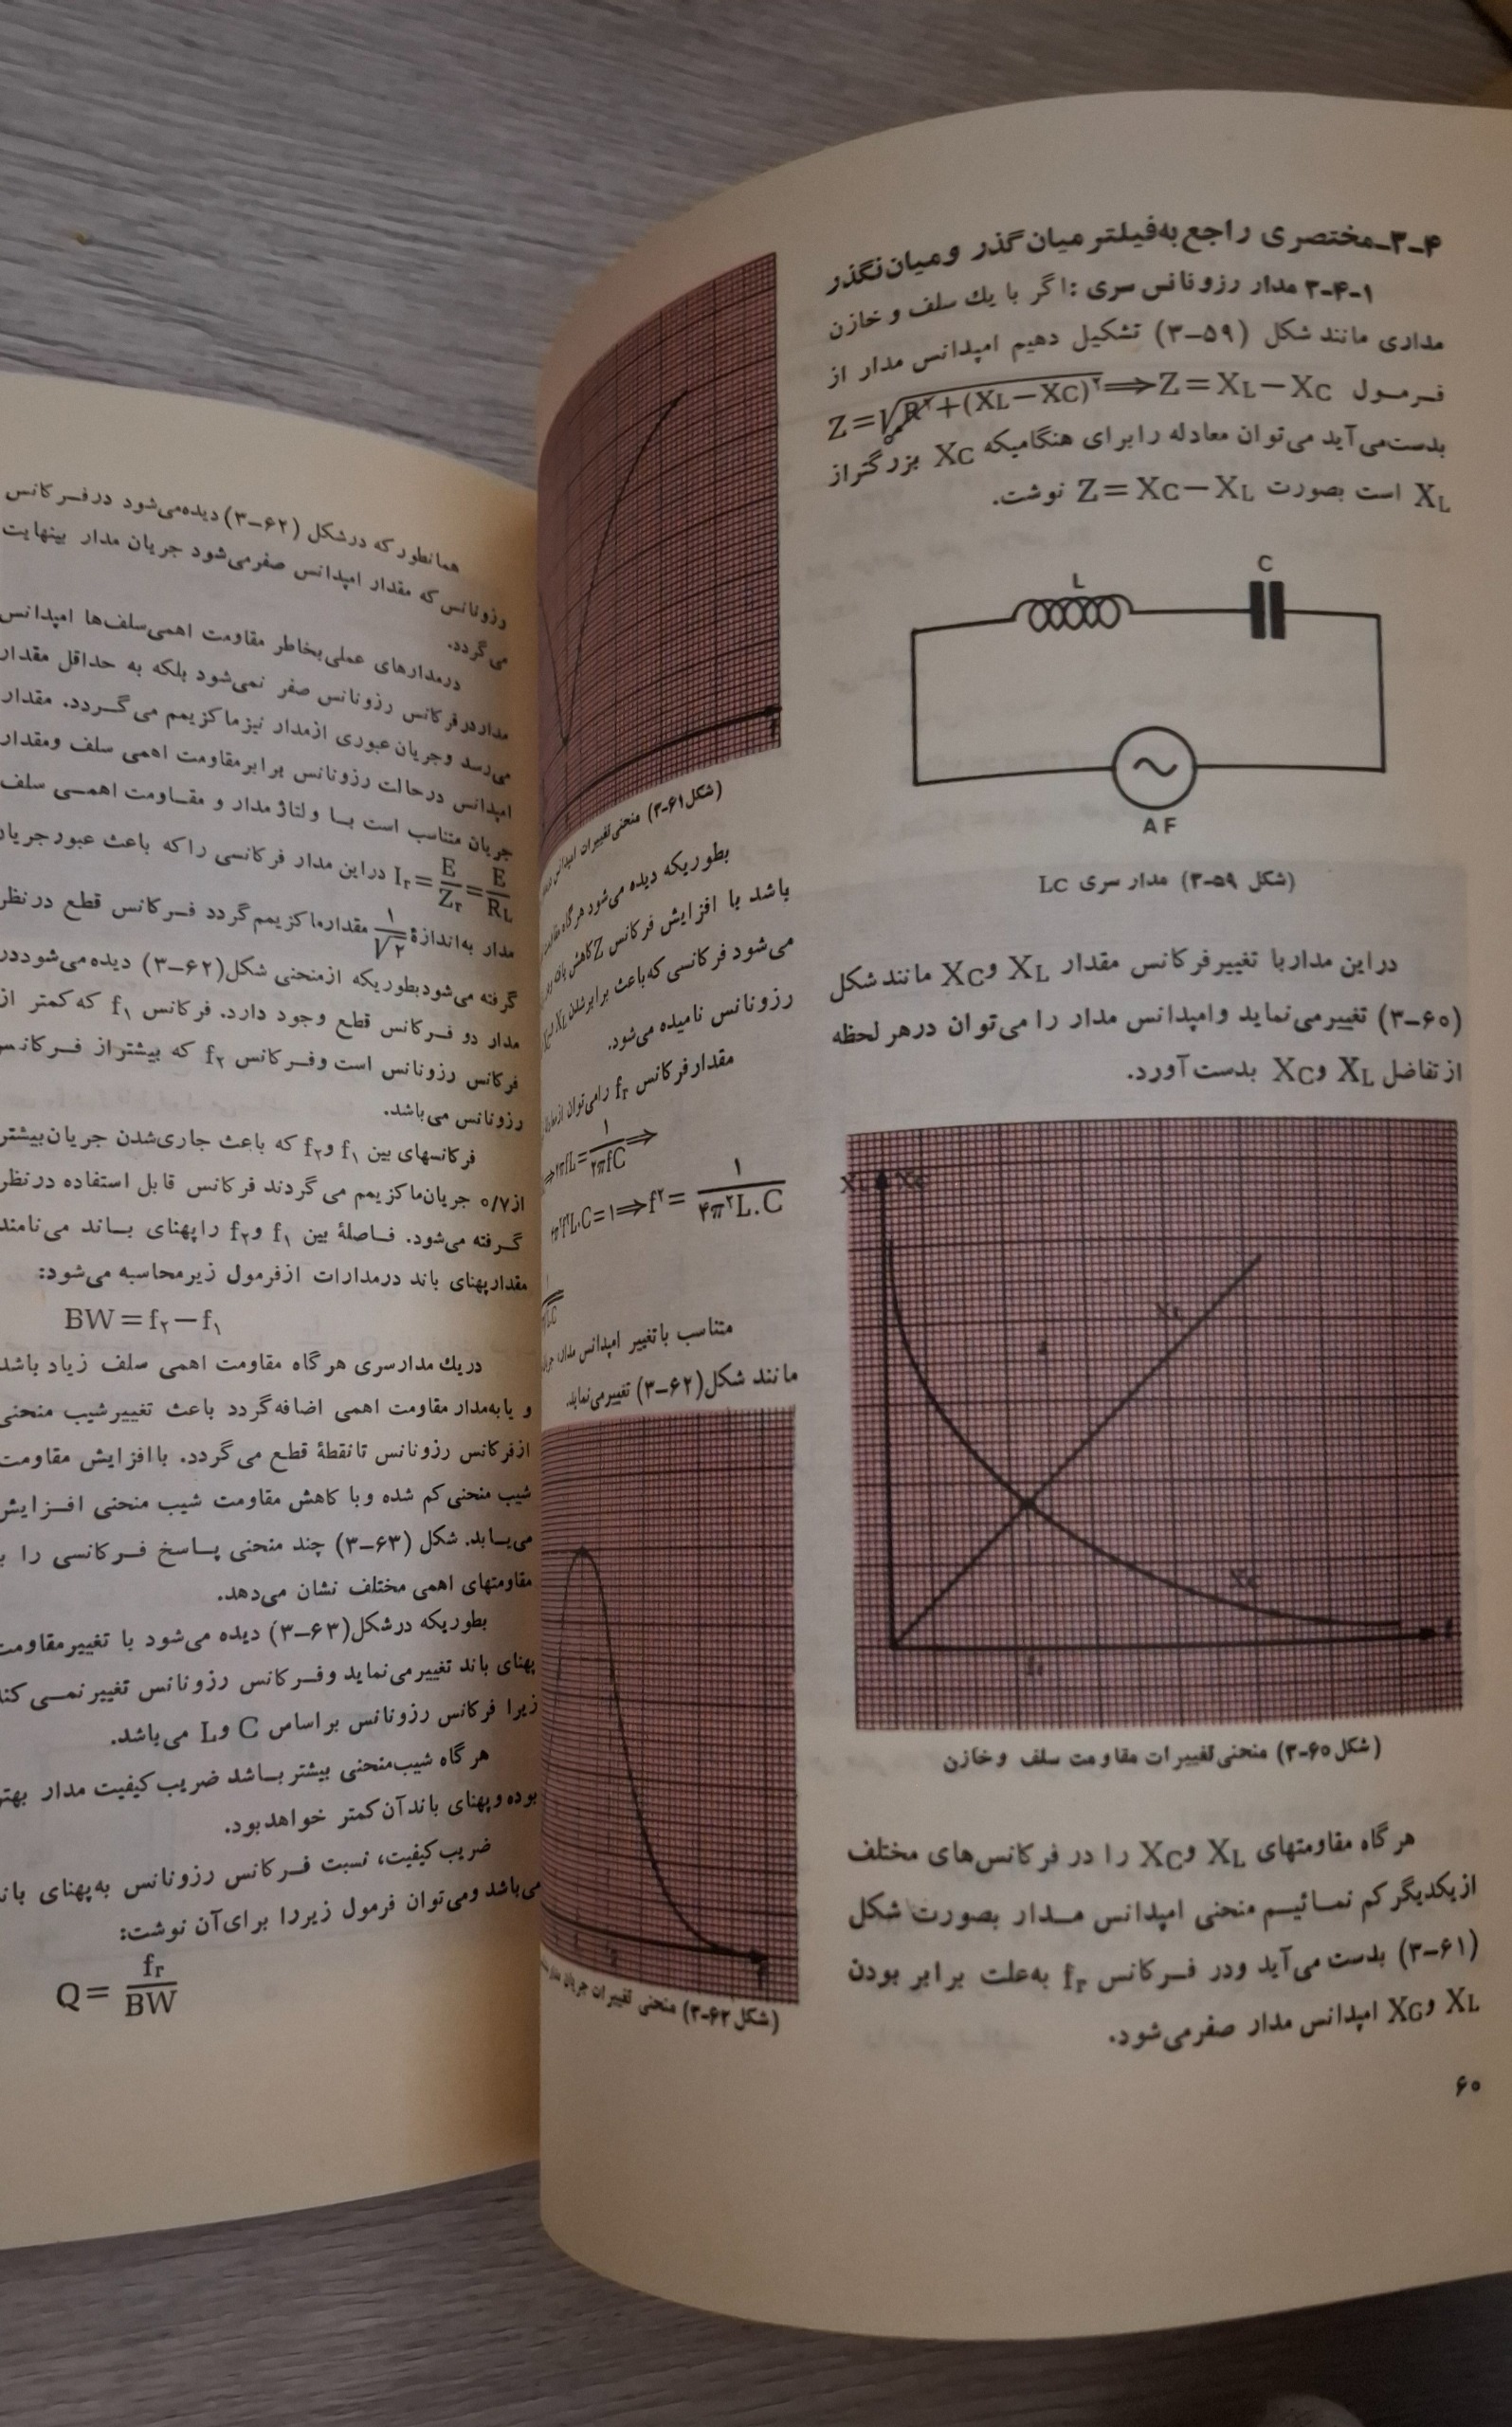 ۳-۴-مختصری راجع به فیلتر میان گذر و میان نگذر
۳-۴-۱ مدار رزونانس سری : اگر با یك سلف و خازن
مداری مانند شکل (۳-۵۹) تشکیل دهیم امپدانس مدار از
فرمول Z=√R۲+(XL−XC)۲⇒Z=XL−XC
بدست می‌آید می‌توان معادله را برای هنگامیکه XC بزرگتر از
XL است بصورت Z=XC−XL نوشت.
L
C
AF
(شکل ۳-۵۹) مدار سری LC
در این مدار با تغییر فرکانس مقدار XL و XC مانند شکل
(۳-۶۰) تغییر می‌نماید و امپدانس مدار را می‌توان در هر لحظه
از تفاضل XL و XC بدست آورد.
XL XC
XL
XC
fr
f
(شکل ۳-۶۰) منحنی تغییرات مقاومت سلف و خازن
هر گاه مقاومتهای XL و XC را در فرکانس‌های مختلف
از یکدیگر کم نمائیم منحنی امپدانس مدار بصورت شکل
(۳-۶۱) بدست می‌آید و در فرکانس fr به علت برابر بودن
XL و XC امپدانس مدار صفر می‌شود.
۶۰
f
(شکل ۳-۶۱) منحنی تغییرات امپدانس
بطوریکه دیده می‌شود هر گاه
باشد با افزایش فرکانس Z کاهش یافته
می‌شود فرکانسی که باعث برابر شدن XL
رزونانس نامیده می‌شود.
مقدار فرکانس fr را می‌توان از
⇒۲πfL=۱/۲πfC⇒
f۲L.C=۱⇒f۲=۱/۴π۲L.C
متناسب با تغییر امپدانس مدار،
مانند شکل (۳-۶۲) تغییر می‌نماید.
f
(شکل ۳-۶۲) منحنی تغییرات جریان مدار
همانطور که در شکل (۳-۶۲) دیده می‌شود در فرکانس
رزونانس که مقدار امپدانس صفر می‌شود جریان مدار بینهایت
می‌گردد.
در مدارهای عملی بخاطر مقاومت اهمی سلف‌ها امپدانس
مدار در فرکانس رزونانس صفر نمی‌شود بلکه به حداقل مقدار
می‌رسد و جریان عبوری از مدار نیز ماکزیمم می‌گردد. مقدار
امپدانس در حالت رزونانس برابر مقاومت اهمی سلف و مقدار
جریان متناسب است با ولتاژ مدار و مقاومت اهمی سلف
Ir=E/Zr=E/RL در این مدار فرکانسی را که باعث عبور جریان
مدار به اندازهٔ ۱/√۲ مقدار ماکزیمم گردد فرکانس قطع در نظر
گرفته می‌شود بطوریکه از منحنی شکل (۳-۶۲) دیده می‌شود در
مدار دو فرکانس قطع وجود دارد. فرکانس f۱ که کمتر از
فرکانس رزونانس است و فرکانس f۲ که بیشتر از فرکانس
رزونانس می‌باشد.
فرکانسهای بین f۱ و f۲ که باعث جاری شدن جریان بیشتر
از ۰/۷ جریان ماکزیمم می گردند فرکانس قابل استفاده در نظر
گرفته می‌شود. فاصلهٔ بین f۱ و f۲ را پهنای باند می‌نامند
مقدار پهنای باند در مدارات از فرمول زیر محاسبه می‌شود:
BW=f۲−f۱
در یك مدار سری هر گاه مقاومت اهمی سلف زیاد باشد
و یا به مدار مقاومت اهمی اضافه گردد باعث تغییر شیب منحنی
از فرکانس رزونانس تا نقطهٔ قطع می گردد. با افزایش مقاومت
شیب منحنی کم شده و با کاهش مقاومت شیب منحنی افزایش
می‌یابد. شکل (۳-۶۳) چند منحنی پاسخ فرکانسی را
مقاومتهای اهمی مختلف نشان می‌دهد.
بطوریکه در شکل (۳-۶۳) دیده می‌شود با تغییر مقاومت
پهنای باند تغییر می‌نماید و فرکانس رزونانس تغییر نمی کند
زیرا فرکانس رزونانس بر اساس C و L می‌باشد.
هر گاه شیب منحنی بیشتر باشد ضریب کیفیت مدار بهتر
بوده و پهنای باند آن کمتر خواهد بود.
ضریب کیفیت، نسبت فرکانس رزونانس به پهنای باند
می‌باشد و می‌توان فرمول زیر را برای آن نوشت:
Q=fr/BW